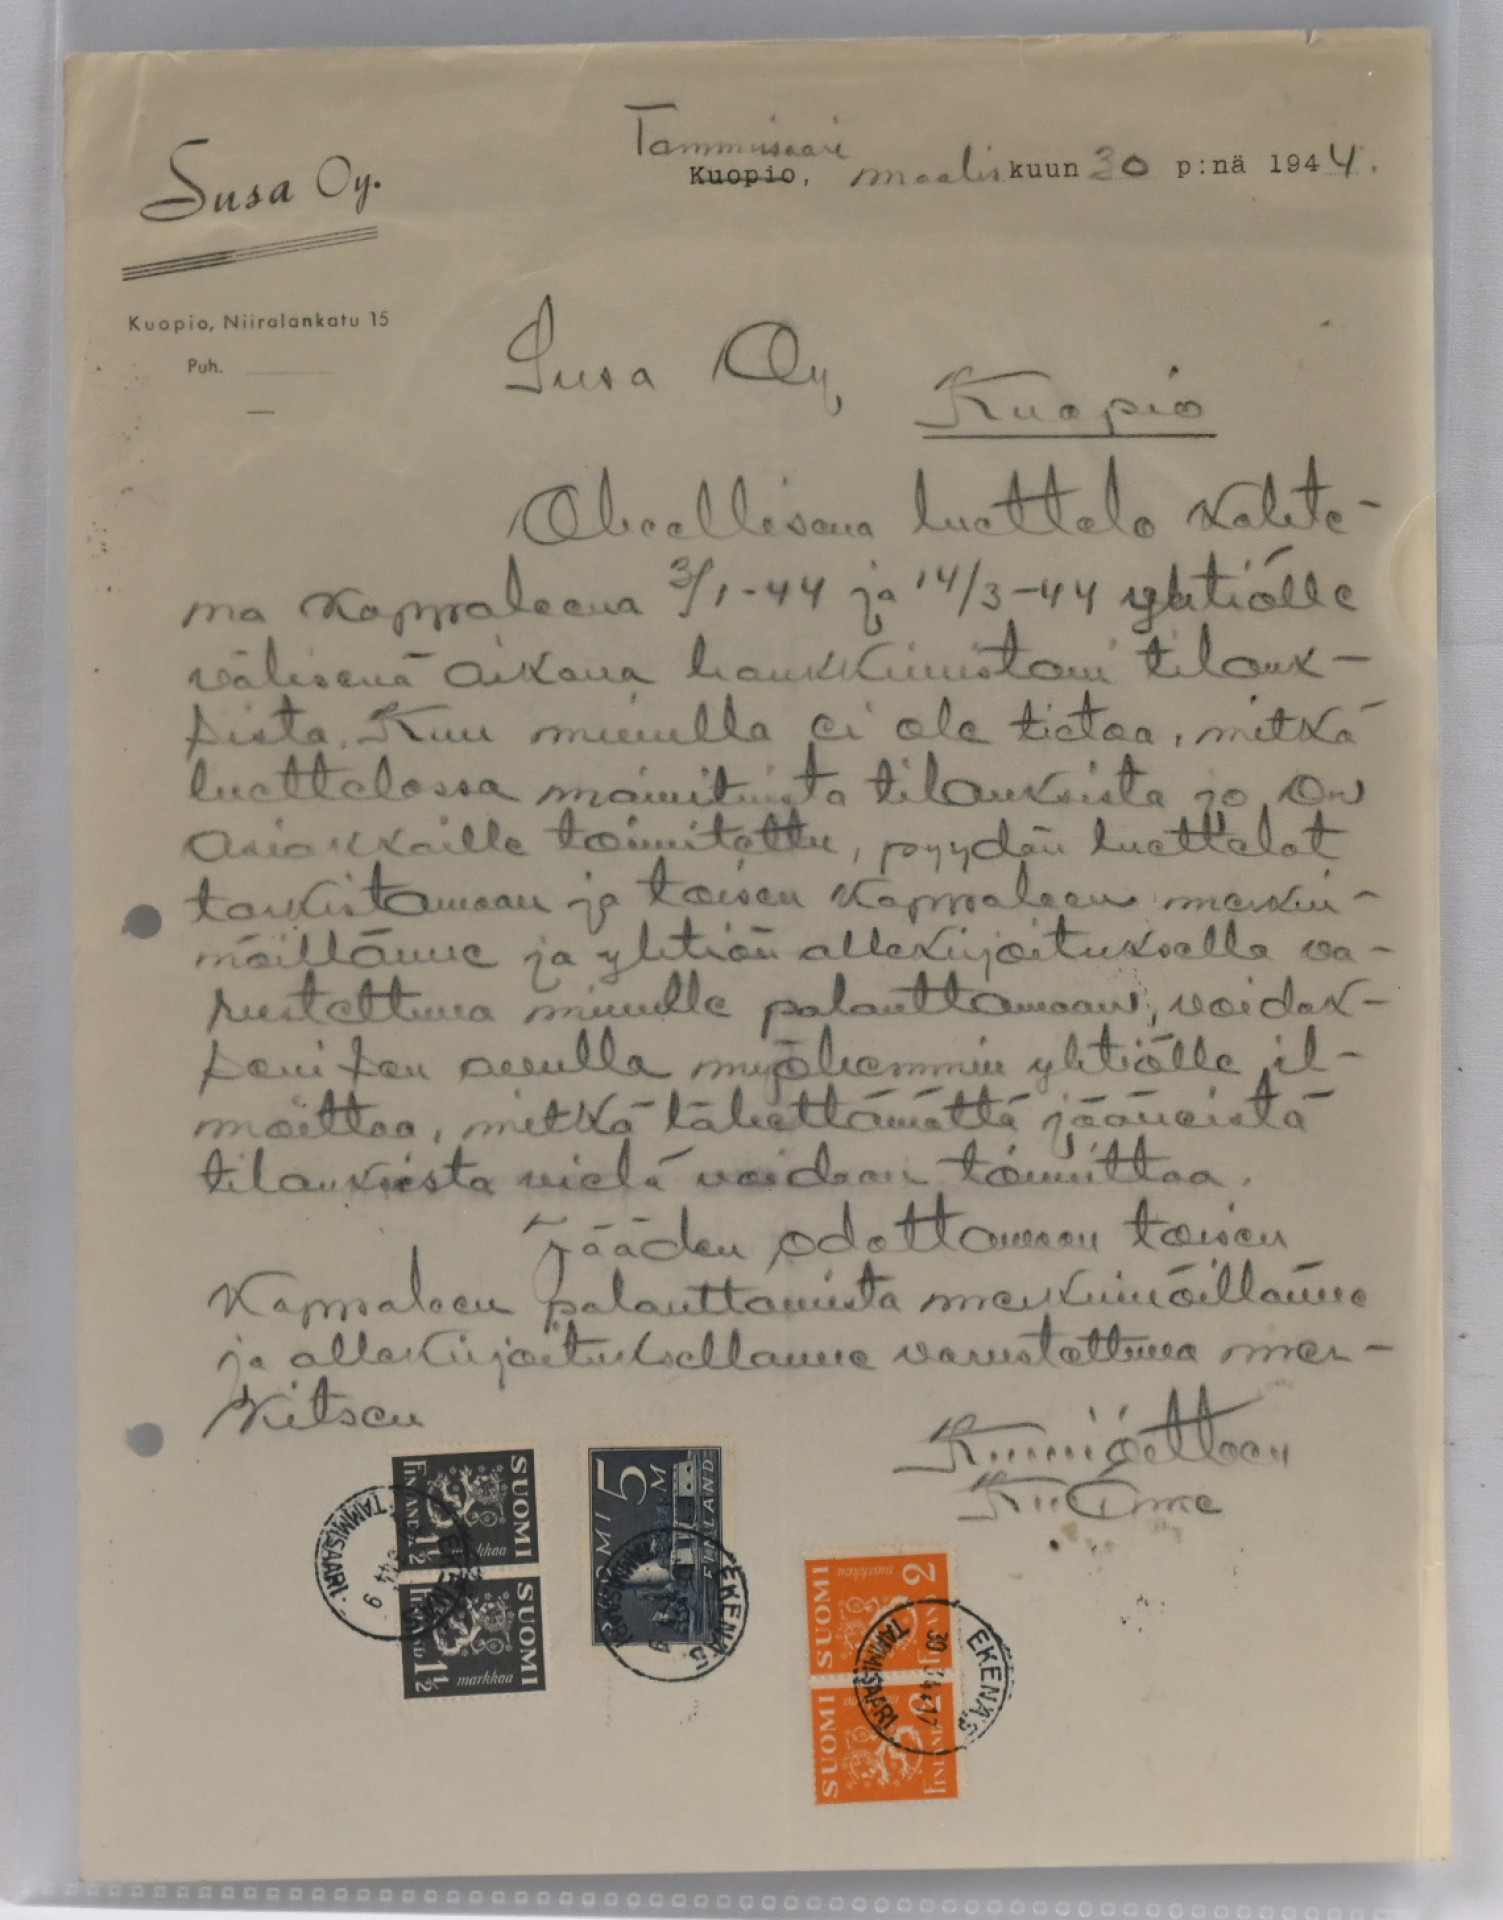 Susa Oy.
Kuopio, Niiralankatu 15
Puh.
Tammisaari
Kuopio, maaliskuun 30 p:nä 1944.
Susa Oy,
Kuopio
Oheellisena luettelo kahte-
na kappaleena 3/1-44 ja 14/3-44 yhtiölle
välisenä aikana hankkimistani tilauk-
sista. Kun minulla ei ole tietoa, mitkä
luettelossa mainituista tilauksista jo on
asiakkaille toimitettu, pyydän luettelot
tarkistamaan ja toisen kappaleen merkin-
nöillänne ja yhtiön allekirjoituksella va-
rustettuna minulle palauttamaan, voidak-
seni sen avulla myöhemmin yhtiölle il-
moittaa, mitkä lähettämättä jääneistä
tilauksista vielä voidaan toimittaa.
Jääden odottamaan toisen
kappaleen palauttamista merkinnöillänne
ja allekirjoituksellanne varustettuna mer-
kitsen
Kunnioittaen
SUOMI
FINLAND 1½
markkaa
SUOMI
FINLAND 1½
markkaa
TAMMISAARI
SUOMI 5 M
FINLAND
EKENÄS
TAMMISAARI
SUOMI
FINLAND 2
markkaa
SUOMI
FINLAND 2
EKENÄS
TAMMISAARI